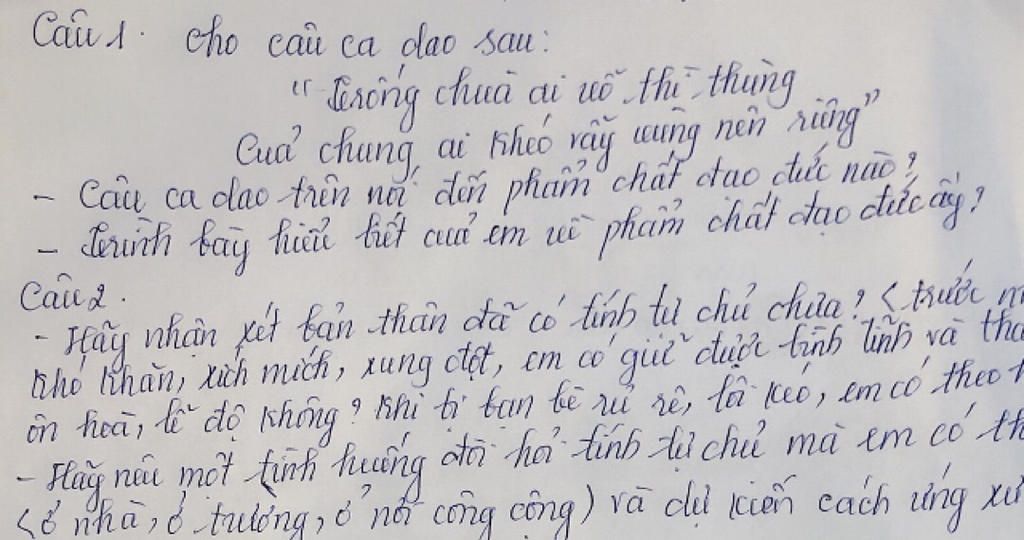 Câu 1. Cho câu ca dao sau:
"Trống chùa ai vỗ thì thùng
Của chung ai khéo vẫy vùng nên riêng"
- Câu ca dao trên nói đến phẩm chất đạo đức nào?
- Trình bày hiểu biết của em về phẩm chất đạo đức ấy?
Câu 2.
- Hãy nhận xét bản thân đã có tính tự chủ chưa? (trước
khó khăn, xích mích, xung đột, em có giữ được bình tĩnh và
ôn hoà, lễ độ không? Khi bị bạn bè rủ rê, lôi kéo, em có theo
- Hãy nêu một tình huống đòi hỏi tính tự chủ mà em có
(ở nhà, ở trường, ở nơi công cộng) và dự kiến cách ứng xử